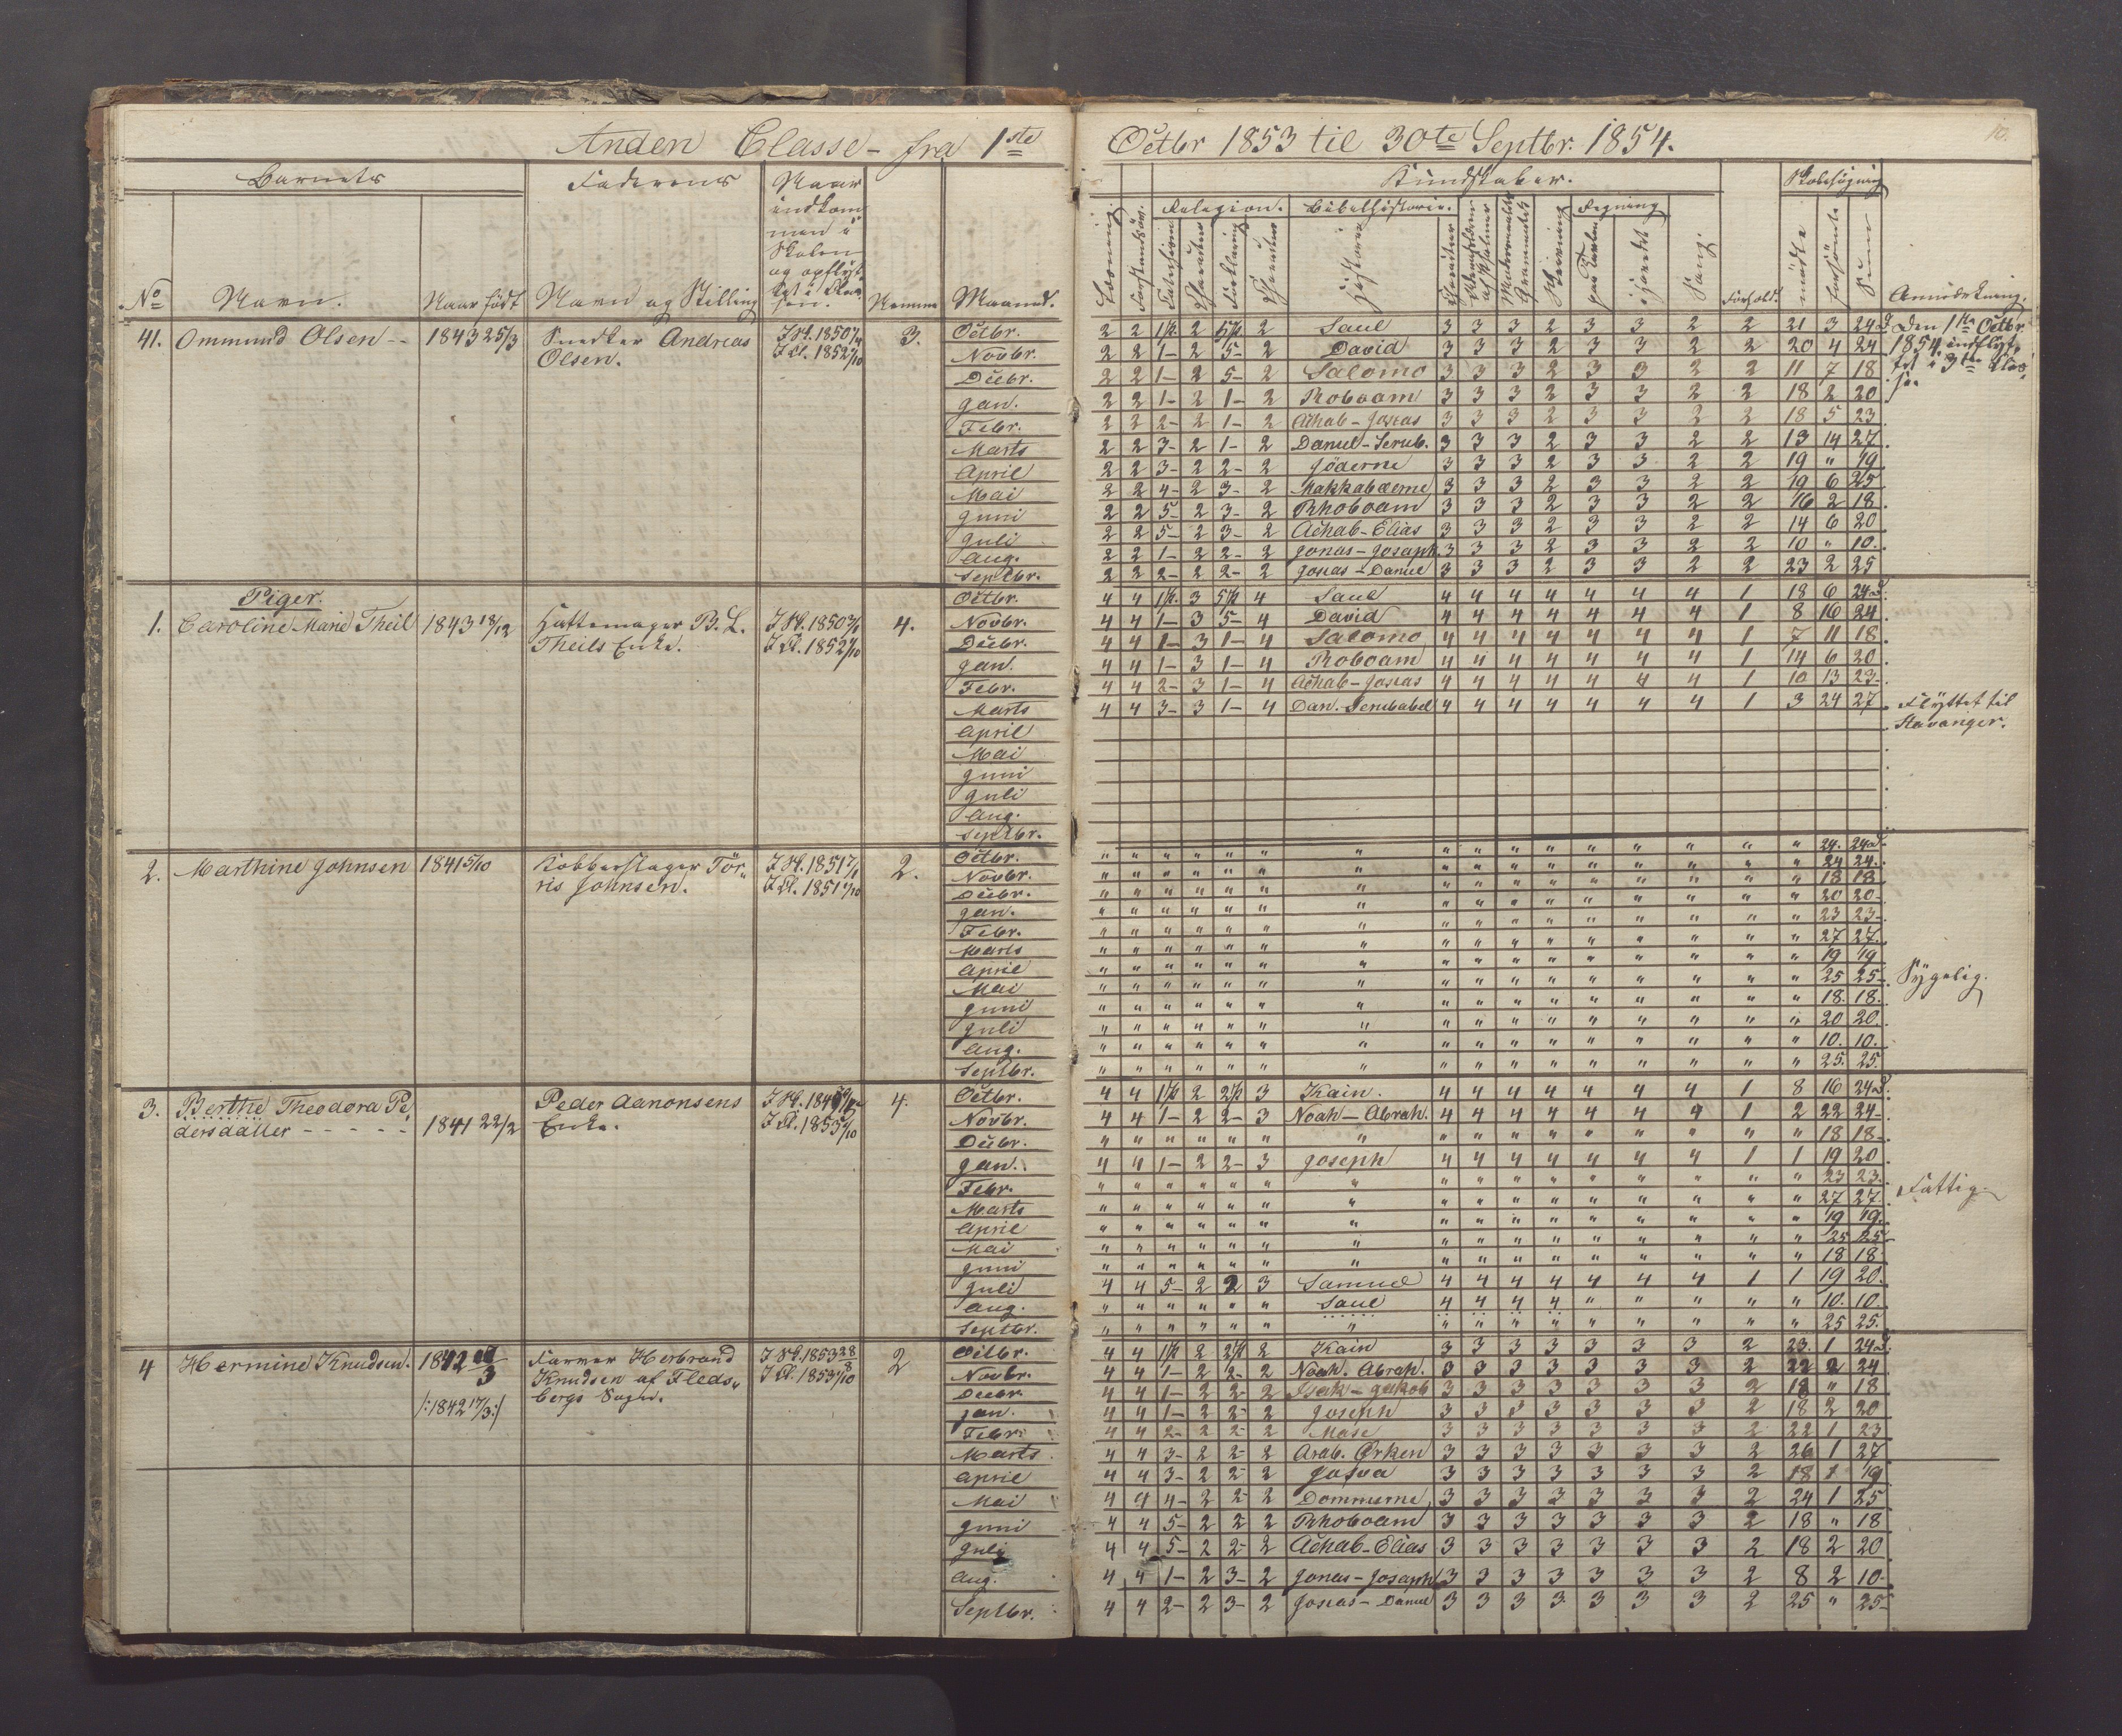 Anden Classe - fra 1ste Octbr 1853 til 30te Septbr. 1854.
Barnets
Faderens
Naar indkommen i Skolen og opflyttet i Klassen.
No
Navn.
Naar født
Navn og Stilling
Nemme
Maaned.
Kundskaber.
Religion.
Bibelhistorie.
Regning
Skolesøgning
Læsning
Forklaring
Historie
Skrivning
Sang.
Forhold.
mødte
forsømte
Sum
Anmærkning.
41. Ommund Olsen -- 1843 25/3 Snedker Andreas Olsen. 3.
Octbr. 2 2 1 2 5 2 Saul 3 3 3 2 3 3 2 2 21 3 24
Novbr. 2 2 1- 2 5- 2 David 3 3 3 2 3 3 2 2 20 4 24
Decbr. 2 2 1- 2 5- 2 Salomo 3 3 3 2 3 3 2 2 11 7 18
Jan. 2 2 1- 2 1- 2 Roboam 3 3 3 2 3 3 2 2 18 2 20
Febr. 2 2 2- 2 1- 2 Achab-Josias 3 3 3 2 3 3 2 2 18 5 23
Marts 2 2 3- 2 1- 2 Daniel-Serub. 3 3 3 2 3 3 2 2 13 14 27
April 2 2 3- 2 2- 2 Jøderne 3 3 3 2 3 3 2 2 19 " 19
Mai 2 2 4- 2 3- 2 Makkabæerne 3 3 3 2 3 3 2 2 19 6 25
Juni 2 2 5- 2 3- 2 Rhoboam 3 3 3 2 3 3 2 2 16 2 18
Juli 2 2 5- 2 3- 2 Achab-Elias 3 3 3 2 3 3 2 2 14 6 20
Aug. 2 2 1- 2 2- 2 Jonas-Josaph. 3 3 3 2 3 3 2 2 10 " 10.
Septbr. 2 2 2- 2 2- 2 Josias-Daniel 3 3 3 2 3 3 2 2 23 2 25
Den 1ste Octbr 1854 indflyttet i 3die Klasse.
Piger.
1. Caroline Marie Theil 1843 18/12 Hattemager B. L. Theils Enke. 4.
Octbr. 4 4 1 3 5 4 Saul 4 4 4 4 4 4 4 1 18 6 24
Novbr. 4 4 1- 3 5- 4 David 4 4 4 4 4 4 4 1 8 16 24
Decbr. 4 4 1- 3 1- 4 Salomo 4 4 4 4 4 4 4 1 7 11 18
Jan. 4 4 1- 3 1- 4 Roboam 4 4 4 4 4 4 4 1 14 6 20
Febr. 4 4 2- 3 1- 4 Achab-Josias 4 4 4 4 4 4 4 1 10 13 23
Marts 4 4 3- 3 1- 4 Dan. Serubabel 4 4 4 4 4 4 4 1 3 24 27
April
Mai
Juni
Juli
Aug.
Septbr.
Flyttet til Stavanger.
2. Marthine Johnsen 1841 5/10 Kobberslager Tørris Johnsen. 2.
Octbr. " " " " " " " " " " " " " " " " 24. 24
Novbr. " " " " " " " " " " " " " " " " 24 24.
Decbr. " " " " " " " " " " " " " " " " 18 18
Jan. " " " " " " " " " " " " " " " " 20 20
Febr. " " " " " " " " " " " " " " " " 23 23
Marts " " " " " " " " " " " " " " " " 27 27.
April " " " " " " " " " " " " " " " " 19 19
Mai " " " " " " " " " " " " " " " " 25 25
Juni " " " " " " " " " " " " " " " " 18. 18.
Juli " " " " " " " " " " " " " " " " 20 20.
Aug. " " " " " " " " " " " " " " " " 10. 10.
Septbr. " " " " " " " " " " " " " " " " 25. 25.
Sygelig.
3. Berthe Theodora Pedersdatter - - - - - 1841 22/2 Peder Aanonsens Enke. 4.
Octbr. 4 4 1 2 2 3 Kain. 4 4 4 4 4 4 4 1 8 16 24
Novbr. 4 4 1- 2 2- 3 Noah-Abrah. 4 4 4 4 4 4 4 1 2 22 24
Decbr. " " " " " " " " " " " " " " " " 18 18
Jan. 4 4 1- 2 2- 3 Joseph 4 4 4 4 4 4 4 1 1 19 20
Febr. " " " " " " " " " " " " " " " " 23 23.
Marts " " " " " " " " " " " " " " " " 27 27.
April " " " " " " " " " " " " " " " " 19 19.
Mai " " " " " " " " " " " " " " " " 25 25
Juni " " " " " " " " " " " " " " " " 18 18
Juli 4 4 5- 2 2 3 Samuel 4 4 4 4 4 4 4 1 1 19 20.
Aug. " " " " " " Saul 4 4 4 4 " " " " " 10. 10.
Septbr. " " " " " " " " " " " " " " " " 25 25.
Fattig.
4 Hermine Knudsen. 1842 /3 /:1842 17/3:/ Farver Herbrand Knudsen af Fledsbergs Sogn. 2
Octbr. 4 4 1 2 2 2 Kain 3 3 3 3 3 3 3 2 23. 1 24
Novbr. 4 4 1- 2 2- 2 Noah. Abrah. 3 3 3 3 3 3 3 2 22 2 24
Decbr. 4 4 1- 2 2- 2 Isak-Jakob 3 3 3 3 3 3 3 2 18 " 18
Jan. 4 4 1- 2 2- 2 Joseph 3 3 3 3 3 3 3 2 18 2 20
Febr. 4 4 2- 2 2- 2 Mose 3 3 3 3 3 3 3 2 22 1 23
Marts 4 4 3- 2 2- 2 Arab. Ørken 3 3 3 3 3 3 3 2 26 1 27
April 4 4 3- 2 2- 2 Josva 3 3 3 3 3 3 3 2 18 1 19
Mai 4 4 4- 2 2- 2 Dommerne 3 3 3 3 3 3 3 2 24 1 25
Juni 4 4 5- 2 2 2 Rhoboam 3 3 3 3 3 3 3 2 18 " 18
Juli 4 4 5- 2 2- 2 Achab-Elias 3 3 3 3 3 3 3 2 18 2 20
Aug. 4 4 1- 2 3- 2 Jonas-Josaph 3 3 3 3 3 3 3 2 8 2 10
Septbr. 4 4 2- 2 3- 2 Josias-Daniel 3 3 3 3 3 3 3 2 25 " 25